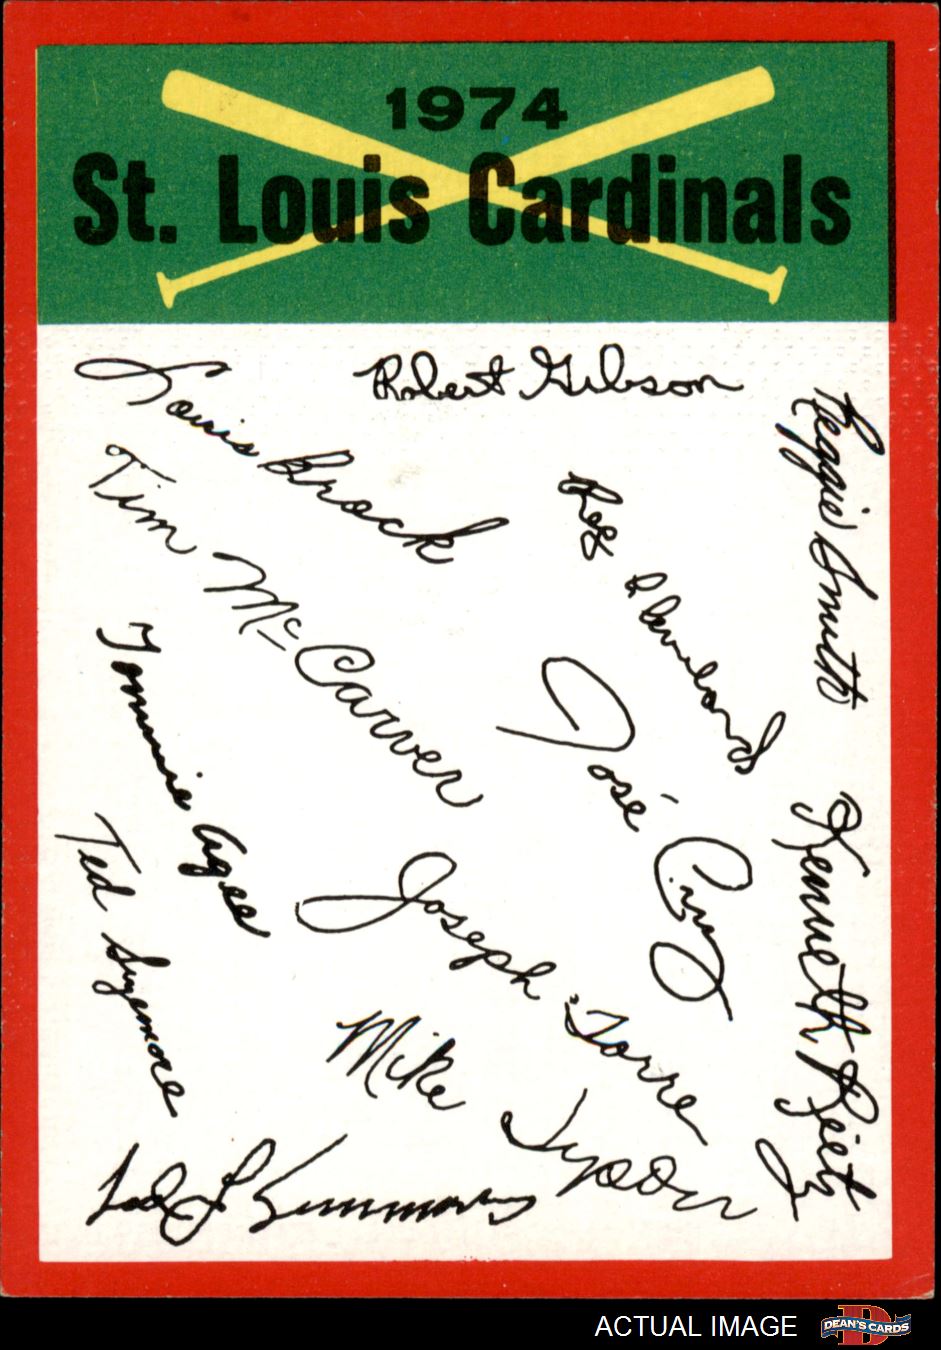 1974
St. Louis Cardinals
Robert Gibson
Louis Brock
Reggie Smith
Tim McCarver
Reg Cleveland
José Cruz
Tommie Agee
Ted Sizemore
Joseph Torre
Kenneth Reitz
Mike Tyson
Ted L Simmons
ACTUAL IMAGE
DEAN'S CARDS